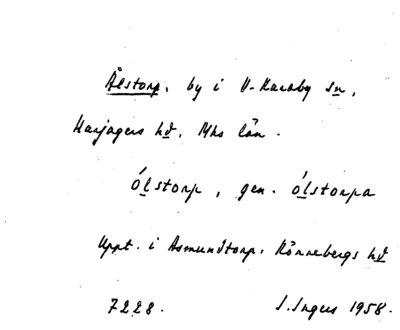 Ålstorp, by i V. Karaby sn,
Harjagers hd, Mhs län.
ólstorp, gen. ólstorpa
Uppt. i Asmundtorp, Rönnebergs hd
7228. I. Ingers 1958.